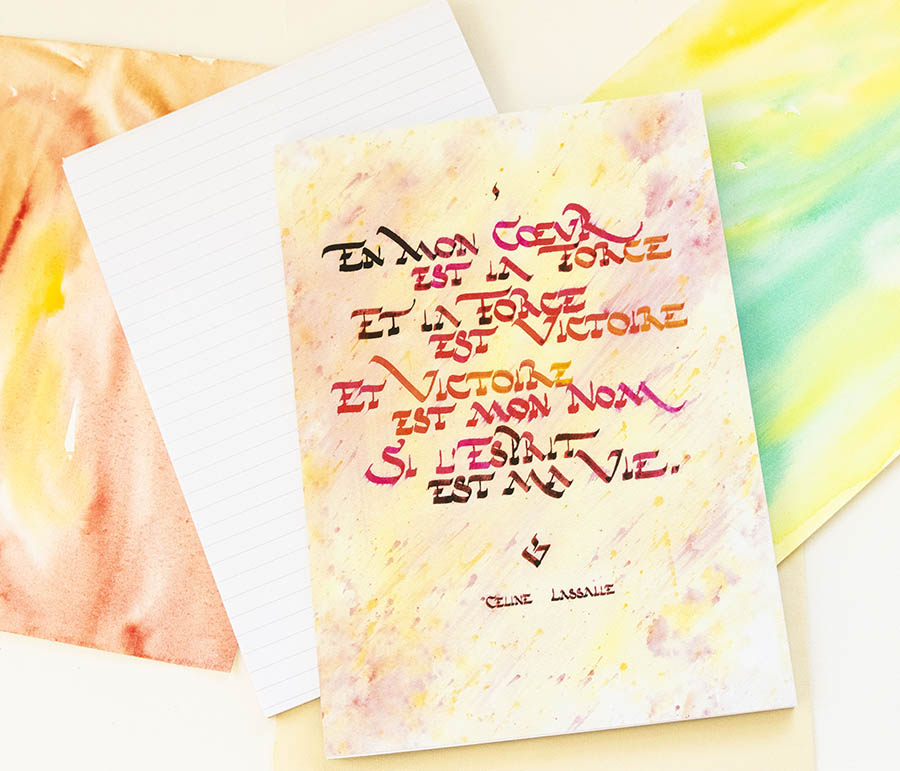 En mon Cœur
est la Force
Et la Force
est Victoire
Et Victoire
est mon Nom
Si l'Esprit
est ma Vie.
Celine Lassalle